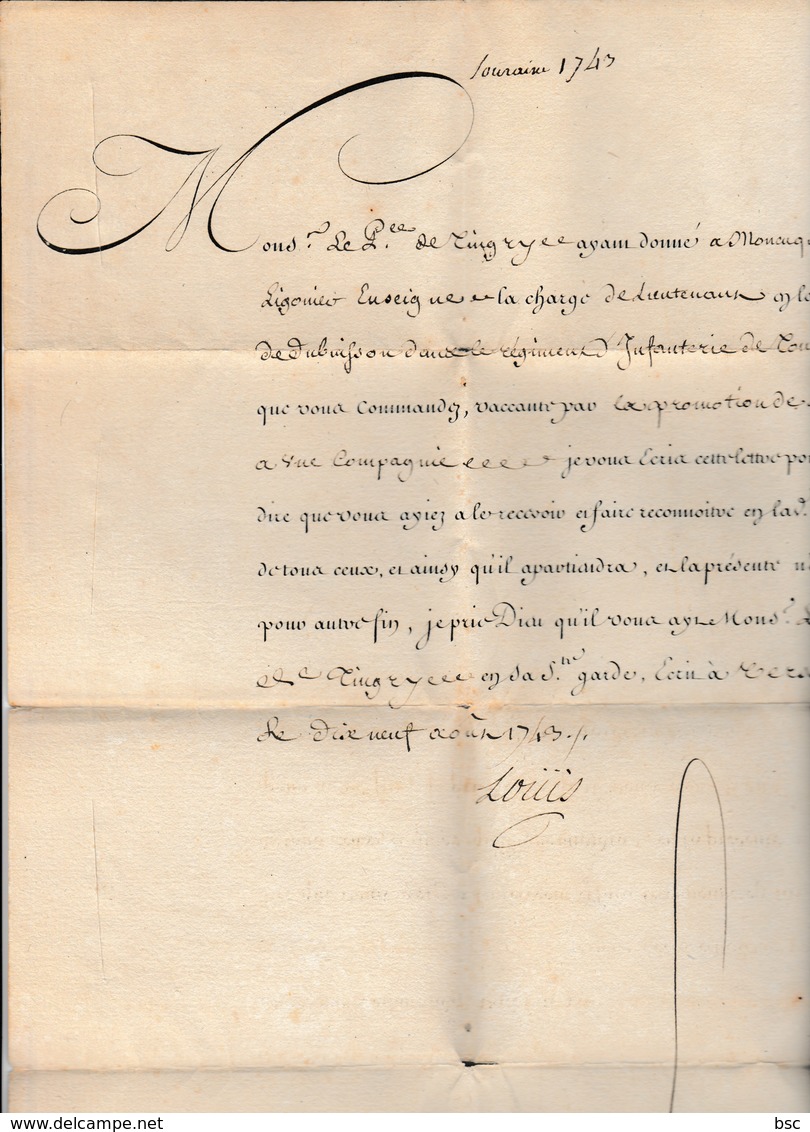 Touraine 1743
Mons.r Le P.ce de Tingry ayant donné a Moncuq
Ligonier Enseigne la charge de Lieutenant en la
de Dubuisson dans le régiment d'Infanterie de Tou
que vous Commandez, vaccante par la promotion de
a une Compagnie je vous Ecris cette lettre pou
dire que vous ayiez a le recevoir et faire reconnoitre en lad.
de tous ceux, et ainsy qu'il apartiendra, et la présente n'
pour autre fin, je prie Dieu qu'il vous ayt Mons.r L
de Tingry en sa S.te garde, Ecrit à Vers
Le dix neuf aoûst 1743./.
Louis
delcampe.net
bsc